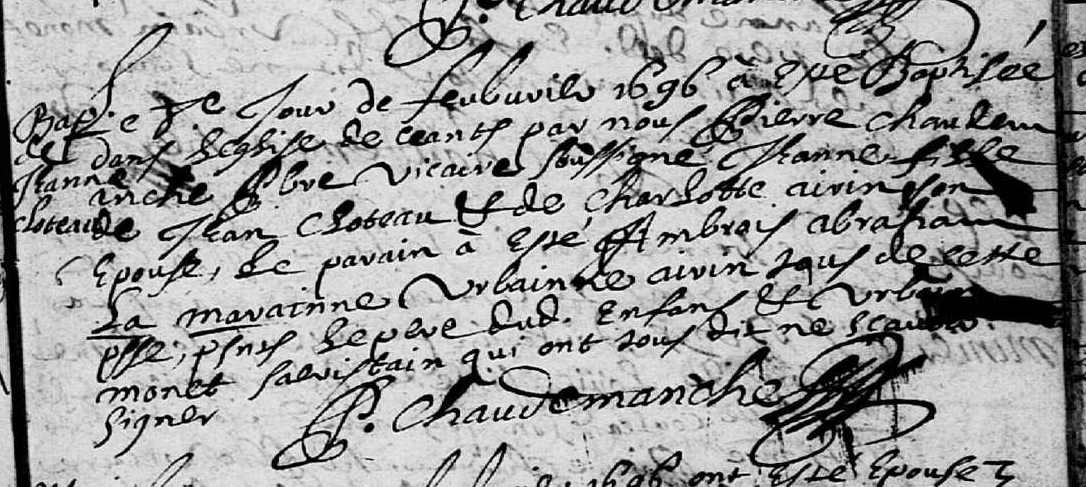 P. Chaudemanche
Bap. Le 7e Jour de feubvrier 1696 à Esté Baptisée
de dans Leglise de ceants par nous Pierre Chaudem
Jeanne anche Pbre vicaire soussigné Jeanne fille
cloteau de Jean Cloteau & de Charlotte airin son
Epouse, Le parain à Esté Ambrois abraham
La marainne Urbainne airin tous de cette
psse, pśnts Le pere dud. Enfans & Urbain
monet sacristain qui ont tous dit ne scavoir
signer
P. Chaudemanche
1696 ont Esté Epousez